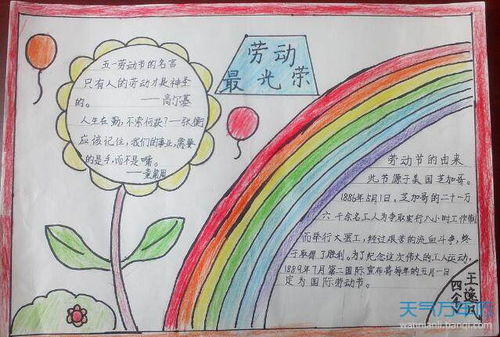 劳动
最光荣
五一劳动节的名言
只有人的劳动才是神圣
的。——高尔基
人生在勤,不索何获?—张衡
应该记住,我们的事业,需要
的是手,而不是嘴。
劳动节的由来
此节源于美国芝加哥。
1886年5月1日,芝加哥的二十一万
六千余名工人为争取实行八小时工作制
而举行大罢工,经过艰苦的流血斗争,终
于取得了胜利。为了纪念这次伟大的工人运动,
1889年7月第二国际宣布将每年的五月一日
定为国际劳动节。
天气万年历
wannianli.tianqi.com